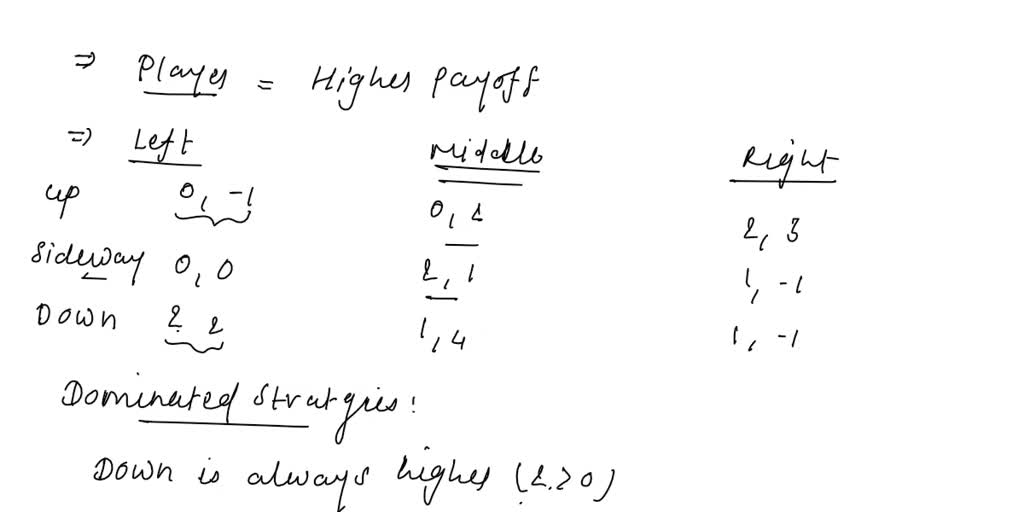 ⇒ Player = Higher payoff
⇒ Left Middle Right
up 0, -1 0, 1 2, 3
Sideway 0, 0 2, 1 1, -1
Down 2 2 1, 4 1, -1
Dominated Stratgies:
Down is always higher (2>0)